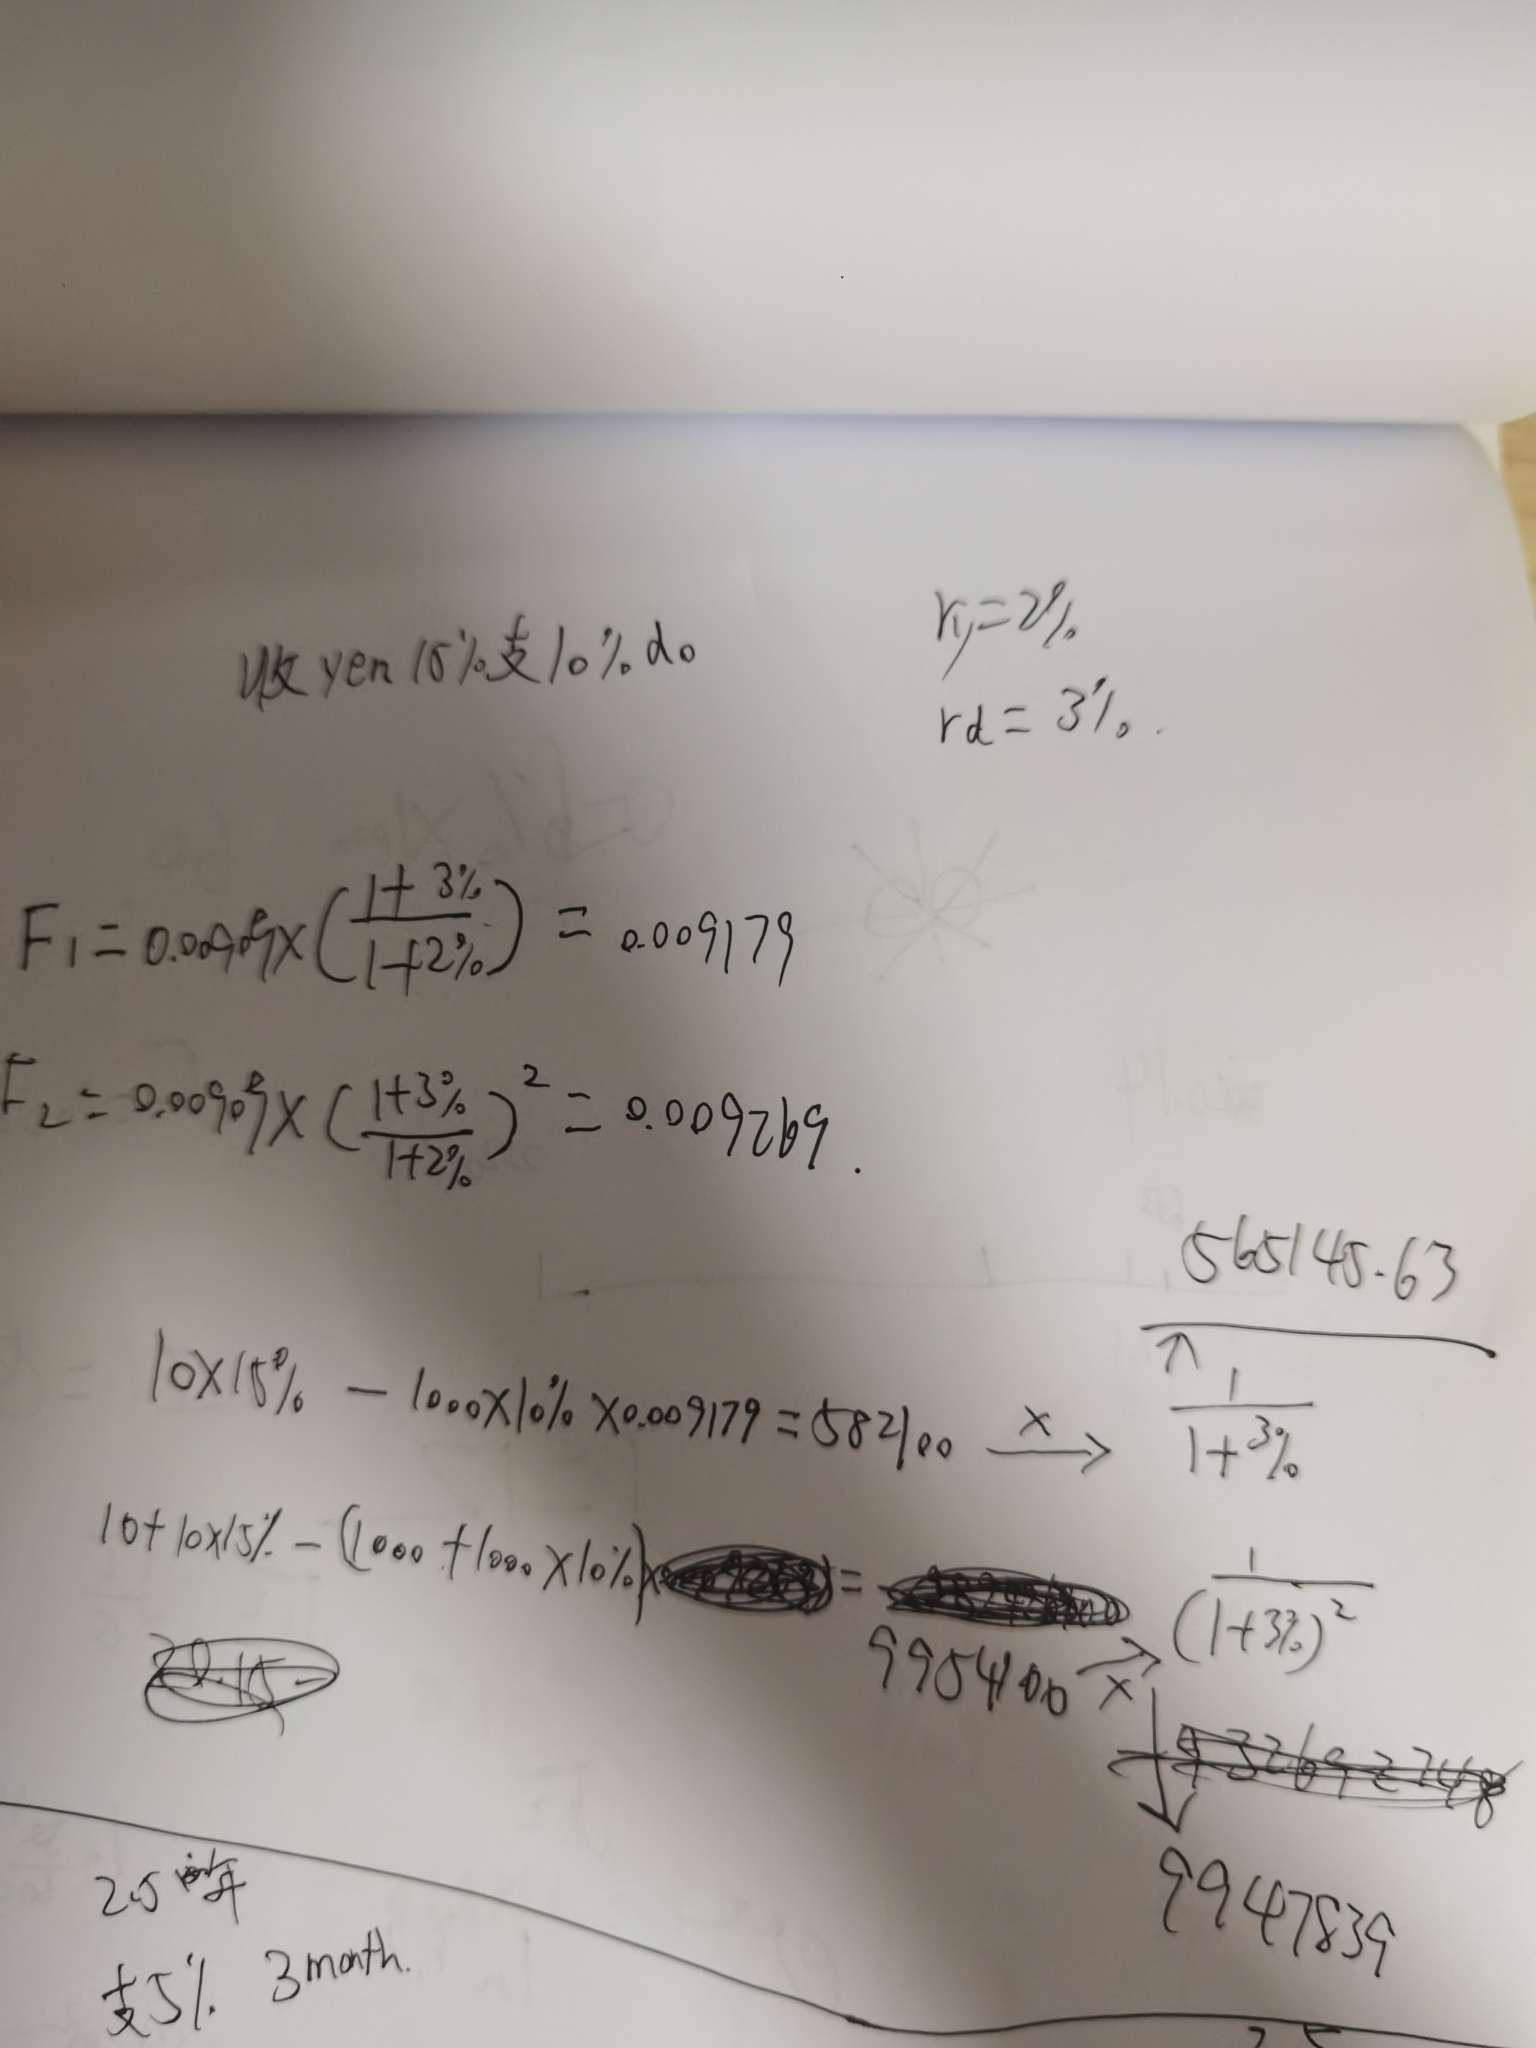 收 yen 15% 支 10% do
ry = 2%
rd = 3%.
F1 = 0.00909 × (1+3% / 1+2%) = 0.009179
F2 = 0.00909 × (1+3% / 1+2%)² = 0.009269.
565145.63
10×15% - 1000×10% ×0.009179 = 582100 ×→ ↑ 1 / 1+3%
10+10×15% - (1000+1000×10%)× = 995400 ×→ 1 / (1+3%)²
9947839
2.5年
支5% 3 month.